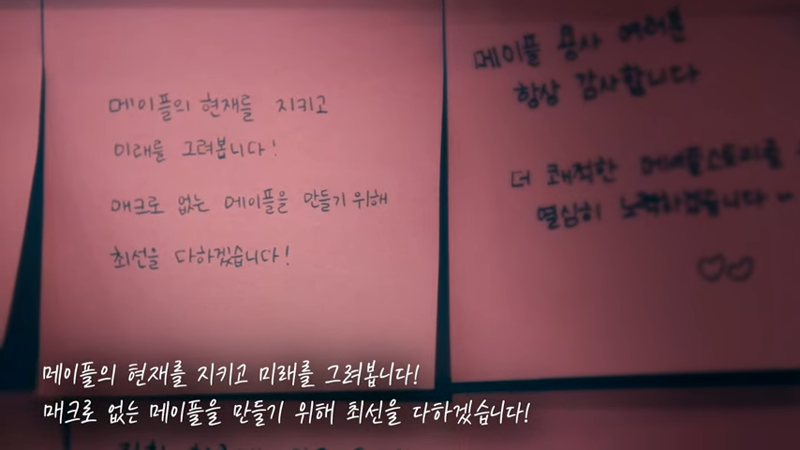 메이플의 현재를 지키고
미래를 그려봅니다!
매크로 없는 메이플을 만들기 위해
최선을 다하겠습니다!
메이플 용사 여러분
항상 감사합니다
더 쾌적한 메이플스토리를
열심히 노력하겠습니다~
메이플의 현재를 지키고 미래를 그려봅니다!
매크로 없는 메이플을 만들기 위해 최선을 다하겠습니다!